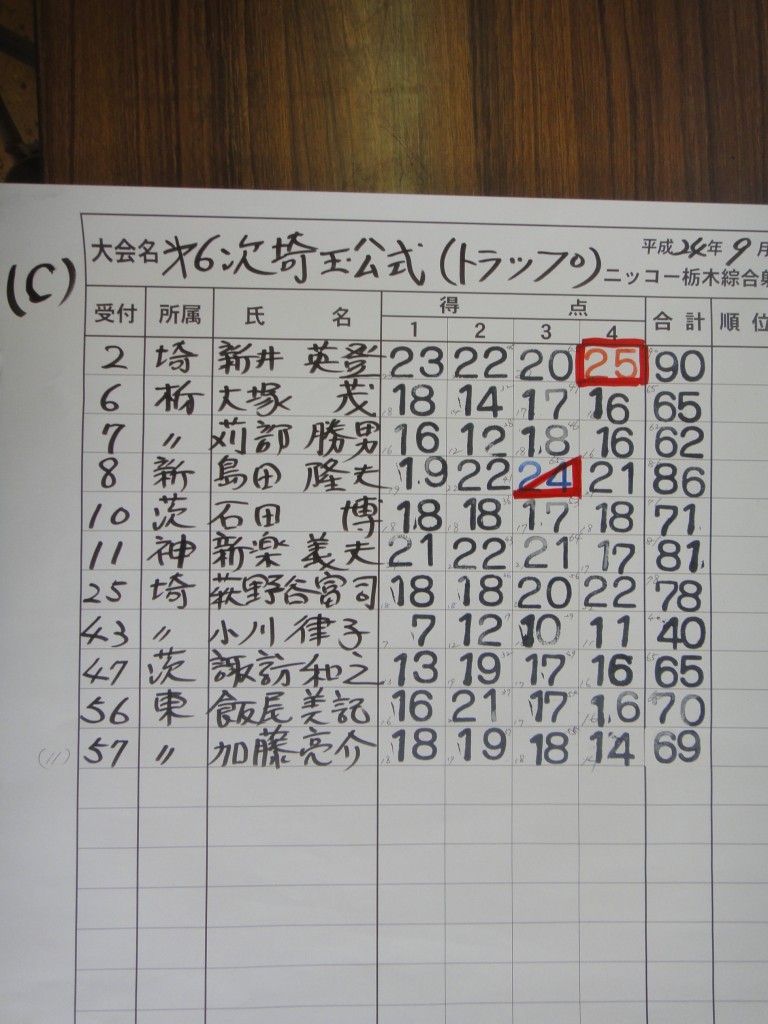 (C)
大会名 第6次埼玉公式(トラップ) 平成24年9月
ニッコー栃木綜合射
受付 所属 氏名 得点 合計 順位
1 2 3 4
2 埼 新井 英登 23 22 20 25 90
6 栃 大塚 茂 18 14 17 16 65
7 〃 苅部 勝男 16 12 18 16 62
8 新 島田 隆夫 19 22 24 21 86
10 茨 石田 博 18 18 17 18 71
11 神 新楽 義夫 21 22 21 17 81
25 埼 荻野谷富司 18 18 20 22 78
43 〃 小川 律子 7 12 10 11 40
47 茨 諏訪和之 13 19 17 16 65
56 東 飯尾美記 16 21 17 16 70
(11) 57 〃 加藤亮介 18 19 18 14 69